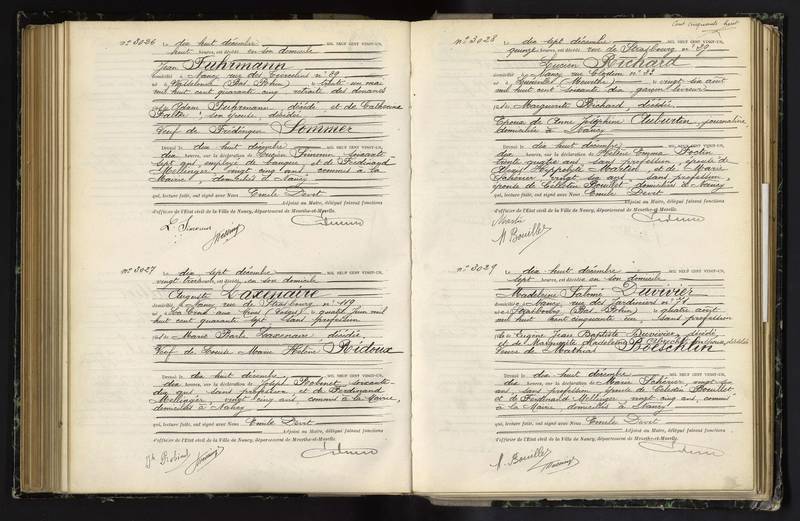 Cent cinquante huit
N° 3026
Le dix huit décembre MIL NEUF CENT VINGT-UN,
huit heures, est décédé en son domicile
Jean Fuhrmann
domicilié à Nancy rue des n° 39
né à (Bas Rhin) trente un mai
mil huit cent quarante cinq retraité des douanes
fils de Adam Fuhrmann, décédé et de Catherine
son épouse, décédée
Veuf de Sommer
Dressé le dix huit décembre MIL NEUF CENT VINGT-UN,
dix heures, sur la déclaration de Simonin soixante
sept ans, employé de banque, et de Ferdinand
Mellinger vingt cinq ans commis à la
Mairie, domiciliés à Nancy
qui, lecture faite, ont signé avec Nous Emile Devit
Adjoint au Maire, délégué faisant fonctions
d'officier de l'Etat civil de la Ville de Nancy, département de Meurthe-et-Moselle.
L. Simonin
N° 3027
Le dix sept décembre MIL NEUF CENT VINGT-UN,
vingt heures, est décédé en son domicile
Auguste Laxenaire
domicilié à Nancy, rue de Strasbourg n° 119
né à (Vosges) quatre juin mil
huit cent quarante sept sans profession
fils de Marie Laxenaire, décédée
Veuf de Marie Hélène Ridoux
Dressé le dix huit décembre MIL NEUF CENT VINGT-UN,
dix heures, sur la déclaration de Joseph Robinet soixante-
dix ans, sans profession, et de Ferdinand
Mellinger, vingt cinq ans, commis à la Mairie,
domiciliés à Nancy
qui, lecture faite, ont signé avec Nous Emile Devit
Adjoint au Maire, délégué faisant fonctions
d'officier de l'Etat civil de la Ville de Nancy, département de Meurthe-et-Moselle.
N° 3028
Le dix sept décembre MIL NEUF CENT VINGT-UN,
quinze heures, est décédé rue de Strasbourg n° 39
Lucien Richard
domicilié à Nancy rue n° 33
né à (Meurthe) vingt six août
mil huit cent soixante dix garçon livreur
fils de Marguerite Richard, décédée
Epoux de Anne Joséphine Aubertin, journalière
domiciliée à Nancy
Dressé le dix huit décembre MIL NEUF CENT VINGT-UN,
dix heures, sur la déclaration de Hélène Emma
trente quatre ans, sans profession, épouse de
Hippolyte et de Marie
Schérier vingt six ans, sans profession,
épouse de Célestin Bouillet domiciliés à Nancy
qui, lecture faite, ont signé avec Nous Emile Devit
Adjoint au Maire, délégué faisant fonctions
d'officier de l'Etat civil de la Ville de Nancy, département de Meurthe-et-Moselle.
M. Bouillet
N° 3029
Le dix huit décembre MIL NEUF CENT VINGT-UN,
sept heures, est décédée en son domicile
Madeleine Salomé Duvivier
domiciliée à Nancy rue des Jardiniers n° 71
née à Strasbourg (Bas Rhin) quatre août
mil huit cent cinquante un sans profession
fille de Eugène Jean Baptiste Duvivier, décédé
et de Marguerite Madeleine
Veuve de Mathias Boeschlin
Dressé le dix huit décembre MIL NEUF CENT VINGT-UN,
dix heures, sur la déclaration de Marie Schérier vingt six
ans, sans profession épouse de Célestin Bouillet
et de Ferdinand Mellinger vingt cinq ans, commis
à la Mairie domiciliés à Nancy
qui, lecture faite, ont signé avec Nous Emile Devit
Adjoint au Maire, délégué faisant fonctions
d'officier de l'Etat civil de la Ville de Nancy, département de Meurthe-et-Moselle.
M. Bouillet